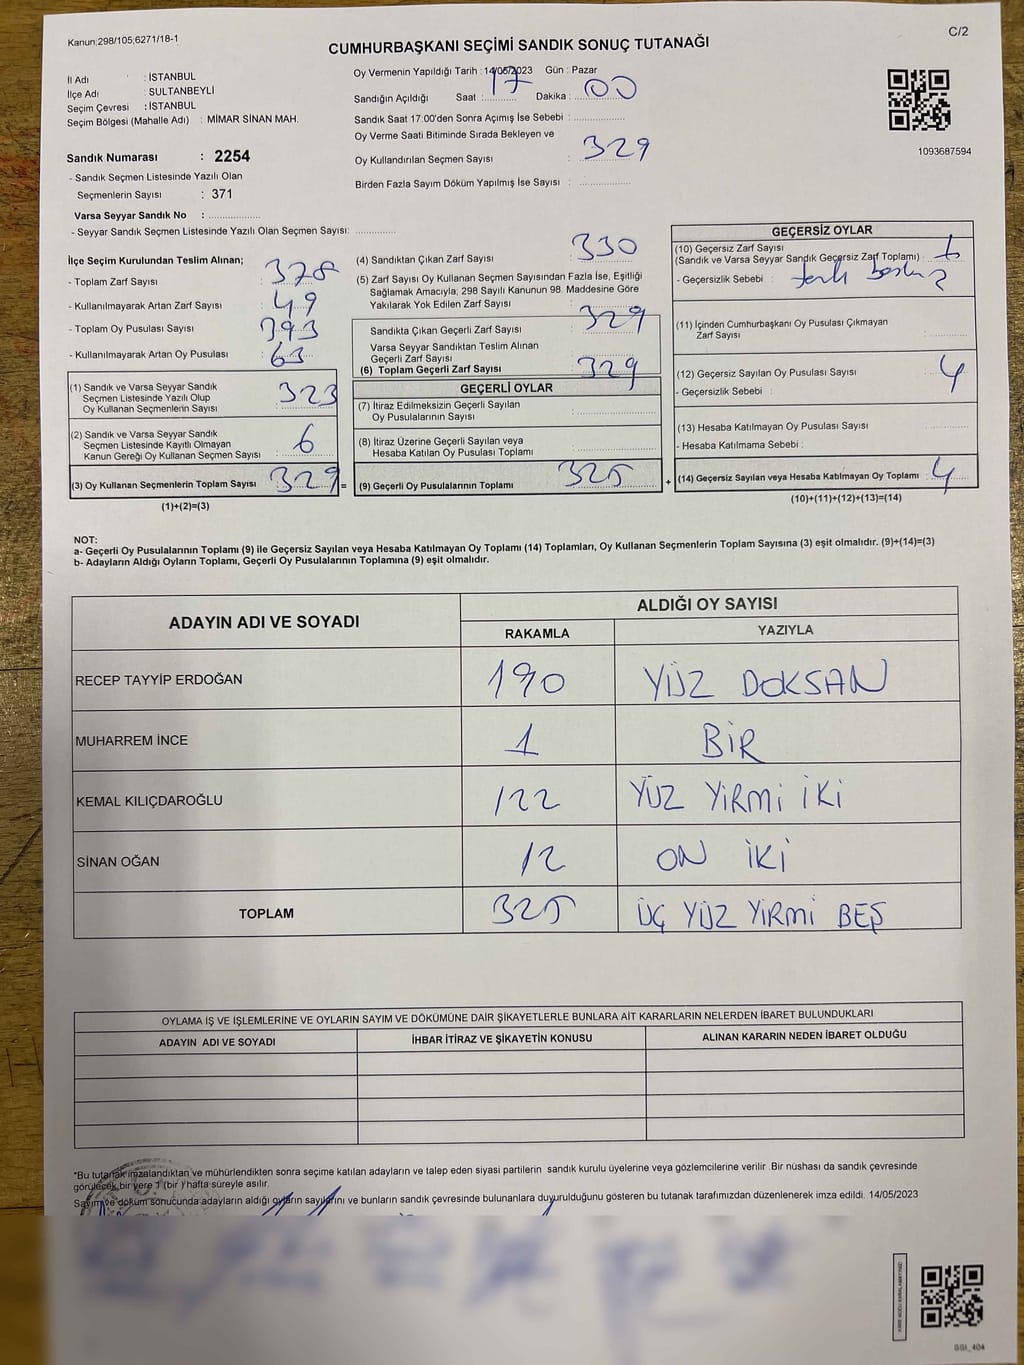 Kanun:298/105;6271/18-1
C/2
CUMHURBAŞKANI SEÇİMİ SANDIK SONUÇ TUTANAĞI
İl Adı : İSTANBUL
İlçe Adı : SULTANBEYLİ
Seçim Çevresi : İSTANBUL
Seçim Bölgesi (Mahalle Adı) : MİMAR SİNAN MAH.
Sandık Numarası : 2254
- Sandık Seçmen Listesinde Yazılı Olan
Seçmenlerin Sayısı : 371
Varsa Seyyar Sandık No : ....................
- Seyyar Sandık Seçmen Listesinde Yazılı Olan Seçmen Sayısı: ...............
Oy Vermenin Yapıldığı Tarih : 14/05/2023 Gün : Pazar
Sandığın Açıldığı Saat : 17 Dakika : 00
Sandık Saat 17:00'den Sonra Açımış İse Sebebi : ....................
Oy Verme Saati Bitiminde Sırada Bekleyen ve
Oy Kullandırılan Seçmen Sayısı : 329
Birden Fazla Sayım Döküm Yapılmış İse Sayısı : ....................
1093687594
İlçe Seçim Kurulundan Teslim Alınan;
- Toplam Zarf Sayısı : 378
- Kullanılmayarak Artan Zarf Sayısı : 49
- Toplam Oy Pusulası Sayısı : 393
- Kullanılmayarak Artan Oy Pusulası : 63
(1) Sandık ve Varsa Seyyar Sandık
Seçmen Listesinde Yazılı Olup
Oy Kullanan Seçmenlerin Sayısı : 323
(2) Sandık ve Varsa Seyyar Sandık
Seçmen Listesinde Kayıtlı Olmayan
Kanun Gereği Oy Kullanan Seçmen Sayısı : 6
(3) Oy Kullanan Seçmenlerin Toplam Sayısı : 329 =
(1)+(2)=(3)
(4) Sandıktan Çıkan Zarf Sayısı : 330
(5) Zarf Sayısı Oy Kullanan Seçmen Sayısından Fazla İse, Eşitliği
Sağlamak Amacıyla; 298 Sayılı Kanunun 98. Maddesine Göre
Yakılarak Yok Edilen Zarf Sayısı :
Sandıkta Çıkan Geçerli Zarf Sayısı : 329
Varsa Seyyar Sandıktan Teslim Alınan
Geçerli Zarf Sayısı
(6) Toplam Geçerli Zarf Sayısı : 329
GEÇERLİ OYLAR
(7) İtiraz Edilmeksizin Geçerli Sayılan
Oy Pusulalarının Sayısı : ....................
(8) İtiraz Üzerine Geçerli Sayılan veya
Hesaba Katılan Oy Pusulası Toplamı : ....................
(9) Geçerli Oy Pusulalarının Toplamı : 325 +
GEÇERSİZ OYLAR
(10) Geçersiz Zarf Sayısı
(Sandık ve Varsa Seyyar Sandık Geçersiz Zarf Toplamı) :
- Geçersizlik Sebebi :
(11) İçinden Cumhurbaşkanı Oy Pusulası Çıkmayan
Zarf Sayısı : ...............
(12) Geçersiz Sayılan Oy Pusulası Sayısı : 4
- Geçersizlik Sebebi :
(13) Hesaba Katılmayan Oy Pusulası Sayısı : ...............
- Hesaba Katılmama Sebebi :
(14) Geçersiz Sayılan veya Hesaba Katılmayan Oy Toplamı : 4
(10)+(11)+(12)+(13)=(14)
NOT:
a- Geçerli Oy Pusulalarının Toplamı (9) ile Geçersiz Sayılan veya Hesaba Katılmayan Oy Toplamı (14) Toplamları, Oy Kullanan Seçmenlerin Toplam Sayısına (3) eşit olmalıdır. (9)+(14)=(3)
b- Adayların Aldığı Oyların Toplamı, Geçerli Oy Pusulalarının Toplamına (9) eşit olmalıdır.
ADAYIN ADI VE SOYADI
ALDIĞI OY SAYISI
RAKAMLA YAZIYLA
RECEP TAYYİP ERDOĞAN 190 YÜZ DOKSAN
MUHARREM İNCE 1 BİR
KEMAL KILIÇDAROĞLU 122 YÜZ YİRMİ İKİ
SİNAN OĞAN 12 ON İKİ
TOPLAM 325 ÜÇ YÜZ YİRMİ BEŞ
OYLAMA İŞ VE İŞLEMLERİNE VE OYLARIN SAYIM VE DÖKÜMÜNE DAİR ŞİKAYETLERLE BUNLARA AİT KARARLARIN NELERDEN İBARET BULUNDUKLARI
ADAYIN ADI VE SOYADI İHBAR İTİRAZ VE ŞİKAYETİN KONUSU ALINAN KARARIN NEDEN İBARET OLDUĞU
*Bu tutanak imzalandıktan ve mühürlendikten sonra seçime katılan adayların ve talep eden siyasi partilerin sandık kurulu üyelerine veya gözlemcilerine verilir. Bir nüshası da sandık çevresinde
görülecek bir yere 1 (bir ) hafta süreyle asılır.
Sayım ve döküm sonucunda adayların aldığı oyların sayılarını ve bunların sandık çevresinde bulunanlara duyurulduğunu gösteren bu tutanak tarafımızdan düzenlenerek imza edildi. 14/05/2023